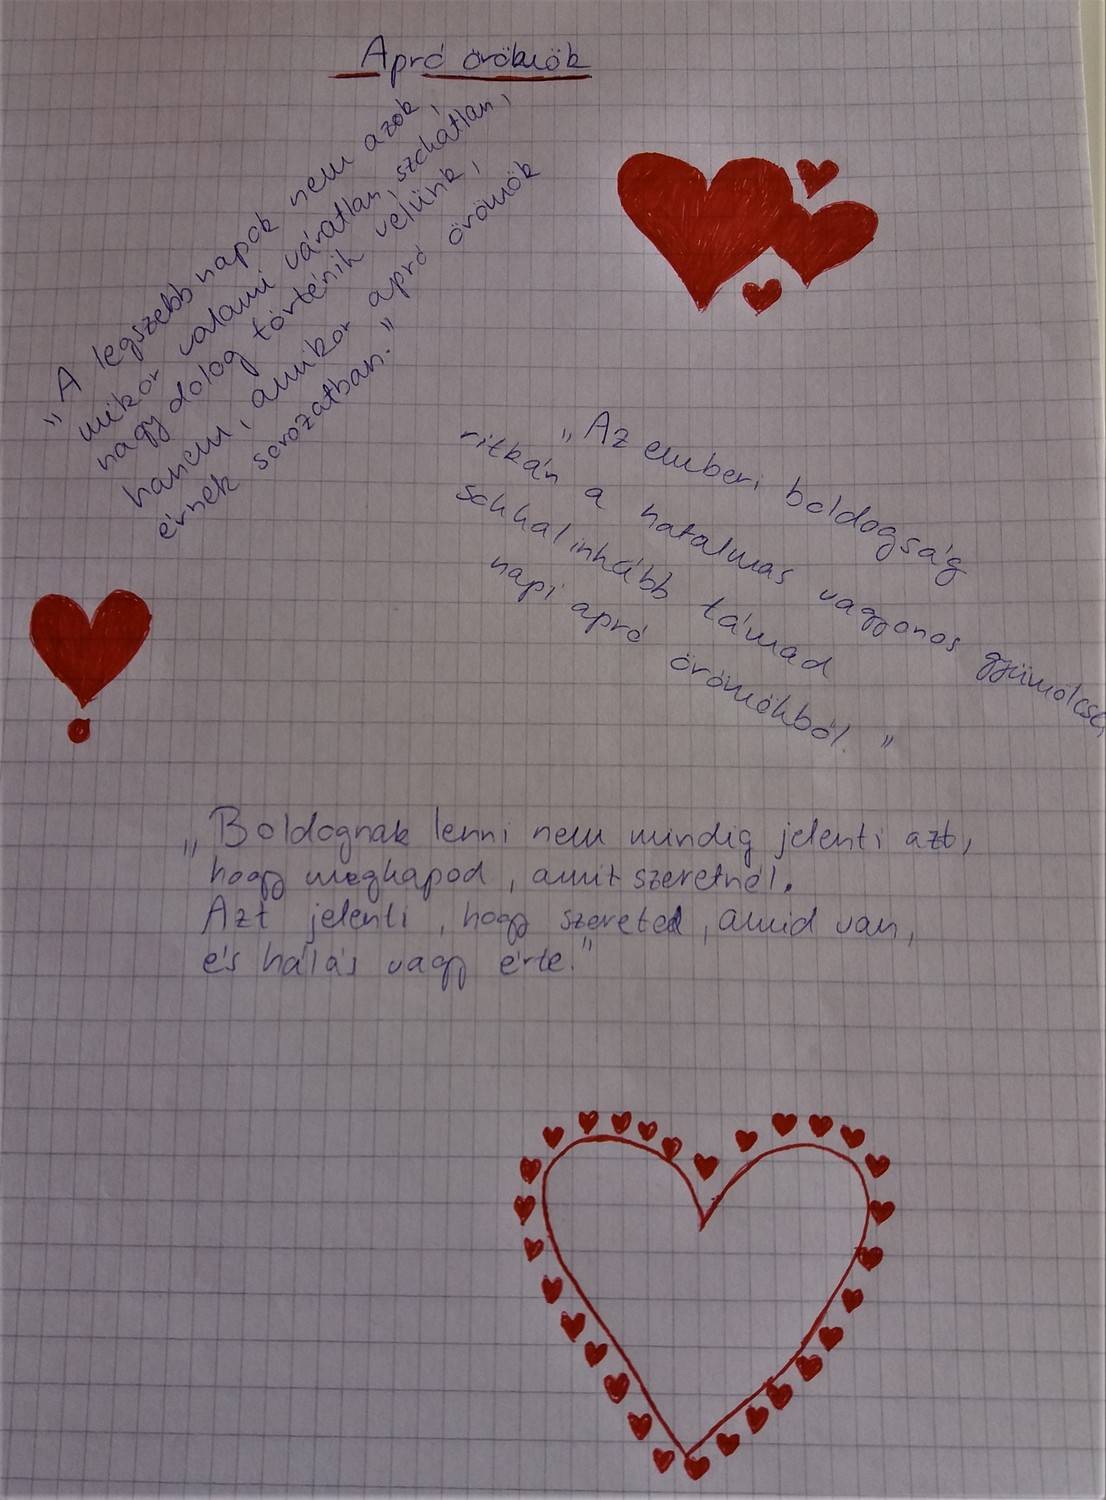 Apró örömök
„A legszebb napok nem azok,
mikor valami váratlan, szokatlan,
nagy dolog történik velünk,
hanem, amikor apró örömök
érnek sorozatban."
„Az emberi boldogság
ritkán a hatalmas vagyonos gyümölcse,
sokkal inkább támad
napi apró örömökből."
„Boldognak lenni nem mindig jelenti azt,
hogy megkapod, amit szeretnél.
Azt jelenti, hogy szereted, amid van,
és hálás vagy érte."